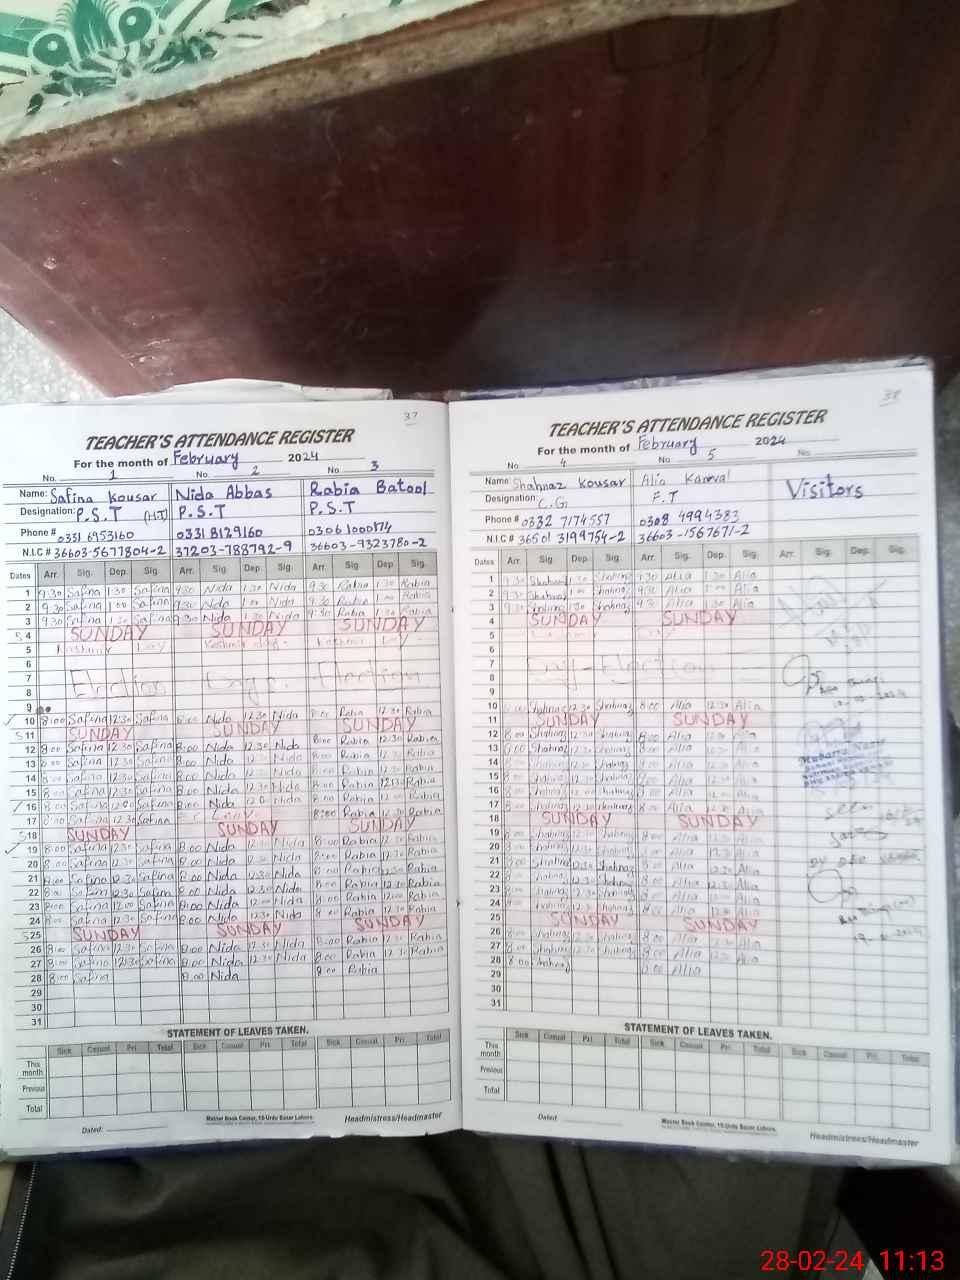 37
TEACHER'S ATTENDANCE REGISTER
For the month of February 2024
No. 1 No. 2 No. 3
Name: Safina Kousar Nida Abbas Rabia Batool
Designation: P.S.T (H.T) P.S.T P.S.T
Phone # 0331 6953160 0331 8129160 0306 1000174
N.I.C # 36603-5677804-2 37203-788792-9 36603-9323780-2
Dates Arr. Sig. Dep. Sig. Arr. Sig. Dep. Sig. Arr. Sig. Dep. Sig.
1 9:30 Safina 1:30 Safina 9:30 Nida 1:30 Nida 9:30 Rabia 1:30 Rabia
2 9:30 Safina 1:00 Safina 9:30 Nida 1:00 Nida 9:30 Rabia Rabia
3 9:30 Safina 1:30 Safina 9:30 Nida 1:30 Nida 9:30 Rabia 1:30 Rabia
S 4 SUNDAY SUNDAY SUNDAY
5 Kashmir Day Kashmir day Kashmir Day
6
7 Election Days. Election
8
9
10 8:00 Safina 12:30 Safina 8:00 Nida 12:30 Nida 8:00 Rabia 12:30 Rabia
S 11 SUNDAY SUNDAY SUNDAY
12 8:00 Safina 12:30 Safina 8:00 Nida 12:30 Nida 8:00 Rabia 12:30 Rabia
13 8:00 Safina 12:30 Safina 8:00 Nida Nida 8:00 Rabia 12:30 Rabia
14 8:00 Safina 12:30 Safina 8:00 Nida Nida 8:00 Rabia 12:30 Rabia
15 8:00 Safina 12:30 Safina 8:00 Nida Nida 8:00 Rabia 12:30 Rabia
16 8:00 Safina 12:00 Safina 8:00 Nida 12:00 Nida 8:00 Rabia 12:00 Rabia
17 8:00 Safina 12:30 Safina Leave 8:00 Rabia 12:30 Rabia
S 18 SUNDAY SUNDAY SUNDAY
19 8:00 Safina 12:30 Safina 8:00 Nida 12:30 Nida 8:00 Rabia 12:30 Rabia
20 8:00 Safina 12:30 Safina 8:00 Nida 12:30 Nida 8:00 Rabia 12:30 Rabia
21 8:00 Safina 12:30 Safina 8:00 Nida 12:30 Nida 8:00 Rabia 12:30 Rabia
22 8:00 Safina 12:30 Safina 8:00 Nida 12:30 Nida 8:00 Rabia 12:30 Rabia
23 8:00 Safina 12:00 Safina 8:00 Nida Nida 8:00 Rabia Rabia
24 8:00 Safina 12:30 Safina 8:00 Nida 12:30 Nida 8:00 Rabia 12:30 Rabia
S 25 SUNDAY SUNDAY SUNDAY
26 8:00 Safina 12:30 Safina 8:00 Nida 12:30 Nida 8:00 Rabia 12:30 Rabia
27 8:00 Safina 12:30 Safina 8:00 Nida 12:30 Nida 8:00 Rabia 12:30 Rabia
28 8:00 Safina 8:00 Nida 8:00 Rabia
29
30
31
STATEMENT OF LEAVES TAKEN.
Sick Casual Pri. Total Sick Casual Pri. Total Sick Casual Pri. Total
This month
Previous
Total
Dated:
Master Book Center, 18-Urdu Bazar Lahore.
Headmistress/Headmaster
38
TEACHER'S ATTENDANCE REGISTER
For the month of February 2024
No 4 No 5 No.
Name: Shahnaz Kousar Alia Kanwal Visitors
Designation: C.G F.T
Phone # 0332 7174557 0308 4994383
N.I.C # 36501 3199754-2 36603-1567671-2
Dates Arr. Sig. Dep. Sig. Arr. Sig. Dep. Sig. Arr. Sig. Dep. Sig.
1 9:30 Shahnaz 1:30 Shahnaz 9:30 Alia 1:30 Alia
2 9:30 Shahnaz 1:00 Shahnaz 9:30 Alia 1:00 Alia
3 9:30 Shahnaz 1:30 Shahnaz 9:30 Alia 1:30 Alia
4 SUNDAY SUNDAY
5 Day
6
7 Day - Election
8
9
10 8:00 Shahnaz 12:30 Shahnaz 8:00 Alia 12:30 Alia
11 SUNDAY SUNDAY
12 8:00 Shahnaz 12:30 Shahnaz 8:00 Alia Alia
13 8:00 Shahnaz 12:30 Shahnaz 8:00 Alia Alia
14 8:00 Shahnaz 12:30 Shahnaz 8:00 Alia Alia
15 8:00 Shahnaz 12:30 Shahnaz 8:00 Alia Alia
16 8:00 Shahnaz 12:00 Shahnaz 8:00 Alia 12:00 Alia
17 8:00 Shahnaz 12:30 Shahnaz 8:00 Alia 12:30 Alia
18 SUNDAY SUNDAY
19 8:00 Shahnaz 12:30 Shahnaz 8:00 Alia Alia
20 8:00 Shahnaz 12:30 Shahnaz 8:00 Alia 12:30 Alia
21 8:00 Shahnaz 12:30 Shahnaz 8:00 Alia Alia
22 8:00 Shahnaz 12:30 Shahnaz 8:00 Alia 12:30 Alia
23 8:00 Shahnaz Shahnaz 8:00 Alia Alia
24 8:00 Shahnaz 12:30 Shahnaz 8:00 Alia 12:30 Alia
25 SUNDAY SUNDAY
26 8:00 Shahnaz 12:30 Shahnaz 8:00 Alia 12:30 Alia
27 8:00 Shahnaz 12:30 Shahnaz 8:00 Alia 12:30 Alia
28 8:00 Shahnaz 8:00 Alia
29
30
31
STATEMENT OF LEAVES TAKEN.
Sick Casual Pri. Total Sick Casual Pri. Total Sick Casual Pri. Total
This month
Previous
Total
Dated:
Master Book Center, 18-Urdu Bazar Lahore.
Headmistress/Headmaster
28-02-24 11:13